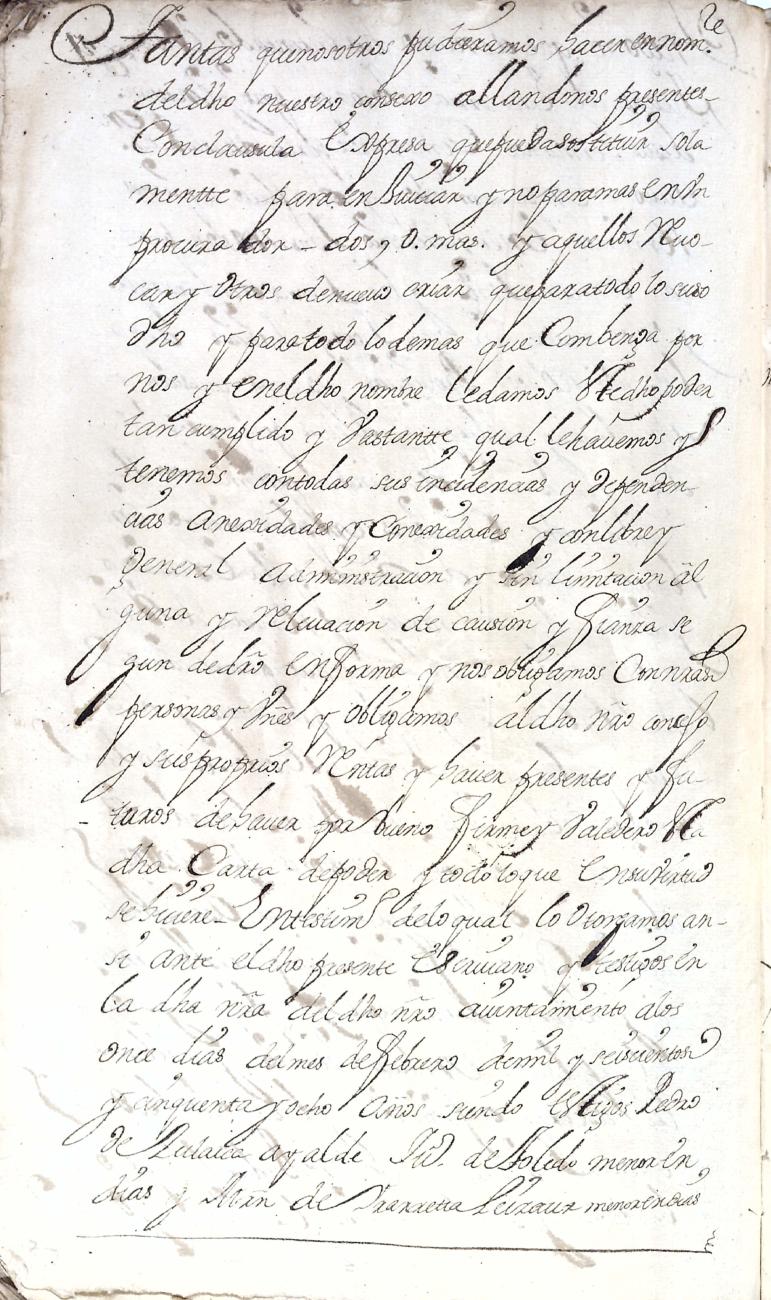 Juntas que nosotros pudieramos hacer en nom.
del dho nuestro consexo allandonos presentes
Con clausula Expresa que pueda sostituir sola
mentte para en Juiciar y no para mas en Un
procurador - dos, o. mas. y aquellos Reuo-
car y Otros de nueuo criar que para todo lo suso
dho y para todo lo demas que Combenga por
nos y en el dho nombre le damos este dho poder
tan cumplido y Vastantte qual le hauemos y
tenemos con todas sus incidencias y dependen
cias anexidades y Conexidades y con libre y
General administracion y sin limitacion al
guna y releuacion de causion y fianza se
gun de dro en forma y nos obligamos Con nras
personas y Vnes y obligamos al dho nro consejo
y sus proprios Rentas y hauer presentes y fu-
turos de hauer por bueno firme y Valedero esta
dha Carta de poder y todo lo que en su virtud
se hiciere - En testim de lo qual lo otorgamos an-
si ante el dho presente escriuano y testigos en
la dha nra del dho nro auintamiento a los
once dias del mes de febrero de mil y seiscientos
y cinquenta y ocho años siendo testigos Pedro
de ayalde de Toledo menor en
dias y de menor en dias